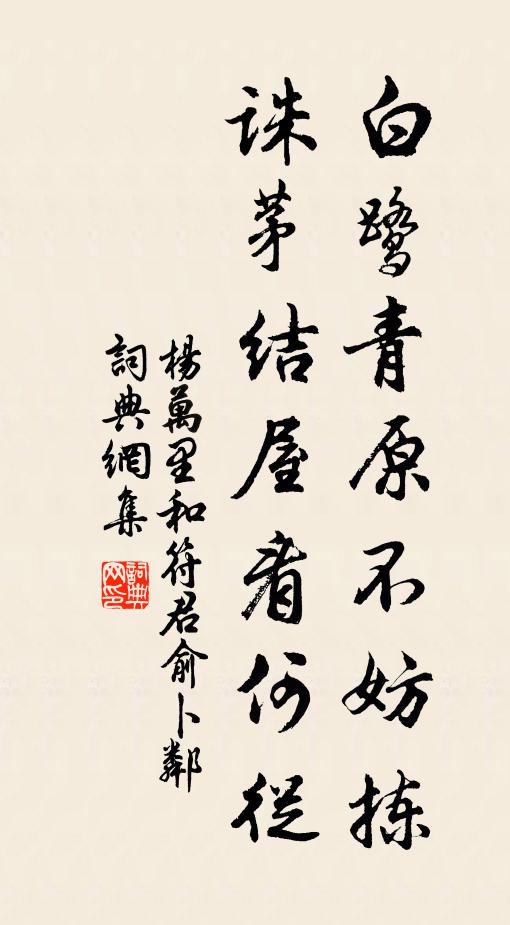 白鹭青原不妨拣
誅茅结屋看何從
楊萬里和符君俞卜鄰
詞典網集
詞典网印